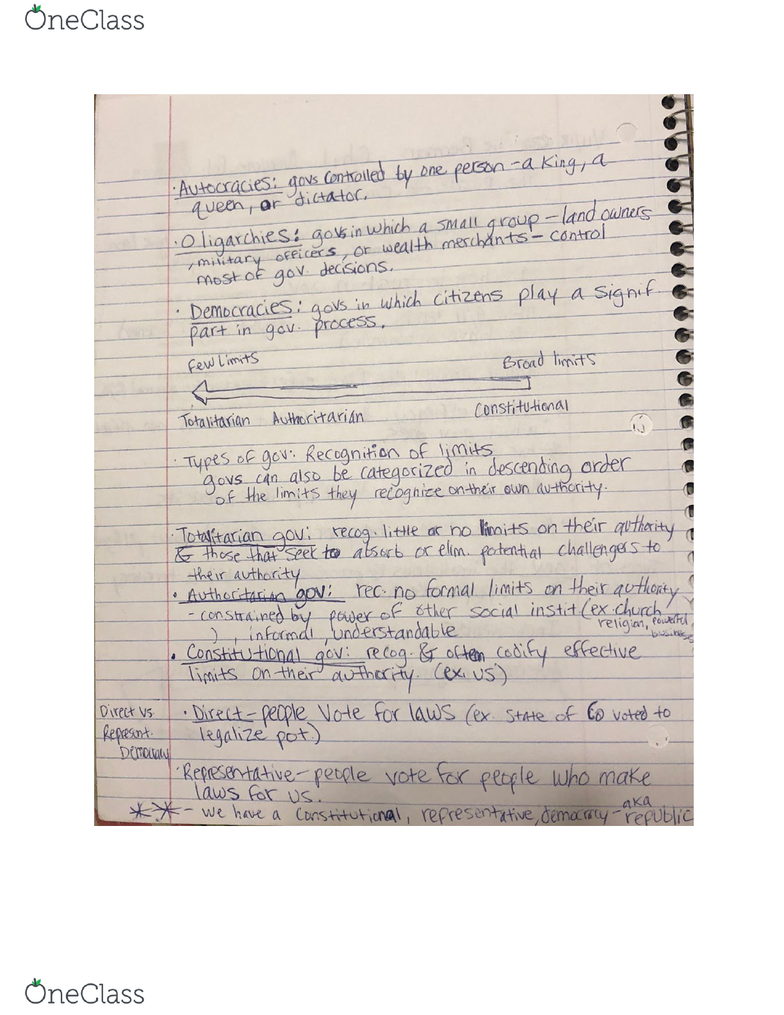 OneClass
· Autocracies: govs controlled by one person - a King, a
queen, or dictator.
· Oligarchies: govs in which a small group - land owners
, military officers, or wealth merchants - control
most of gov decisions.
· Democracies: govs in which citizens play a signif.
part in gov. process.
Few Limits Broad limits
Totalitarian Authoritarian Constitutional
· Types of gov: Recognition of limits
govs can also be categorized in descending order
of the limits they recognize on their own authority.
· Totalitarian gov: recog. little or no limits on their authority
& those that seek to absorb or elim. potential challengers to
their authority
· Authoritarian gov: rec. no formal limits on their authority
- constrained by power of other social instit (ex. church
religion, powerful
business
), informal, understandable
· Constitutional gov: recog. & often codify effective
limits on their authority. (ex. US)
Direct vs
Represent.
Democracy
· Direct - people vote for laws (ex. State of CO voted to
legalize pot.)
· Representative - people vote for people who make
laws for us.
- We have a constitutional, representative, democracy - aka
republic
OneClass